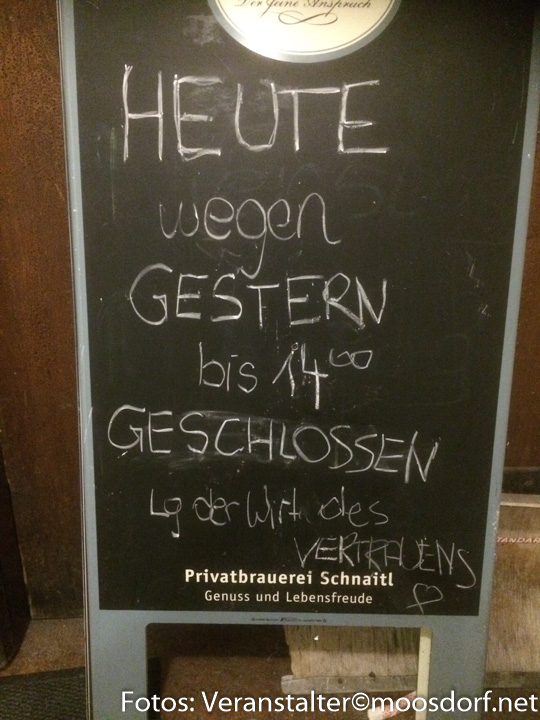 Der feine Anspruch
HEUTE
wegen
GESTERN
bis 14⁰⁰
GESCHLOSSEN
Lg der Wirt des
VERTRAUENS
Privatbrauerei Schnaitl
Genuss und Lebensfreude
Fotos: Veranstalter©moosdorf.net